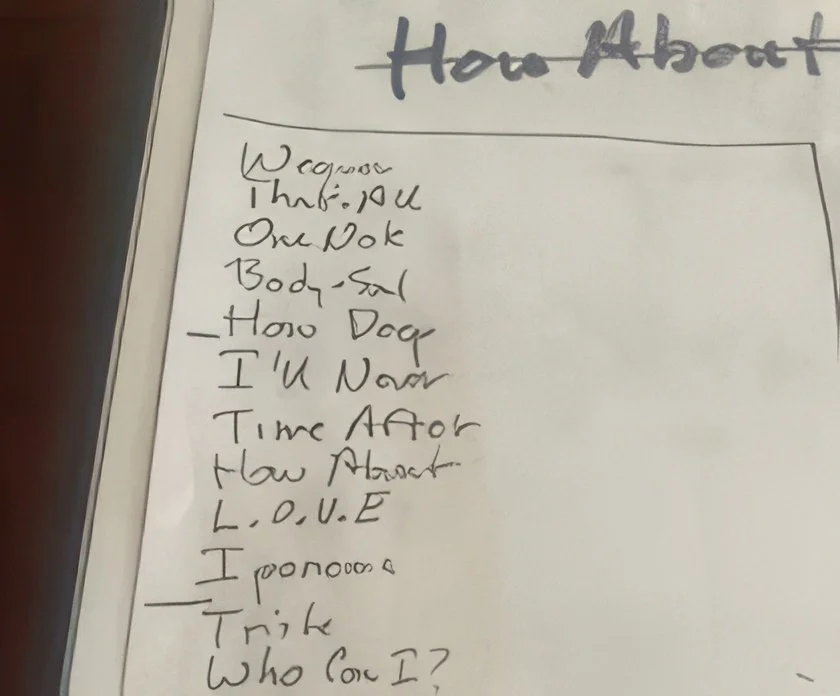 How About
That's All
One Nok
Body-Soul
How Deep
I'll Never
Time After
How About
L.O.V.E
Ipanema
Triste
Who Can I?